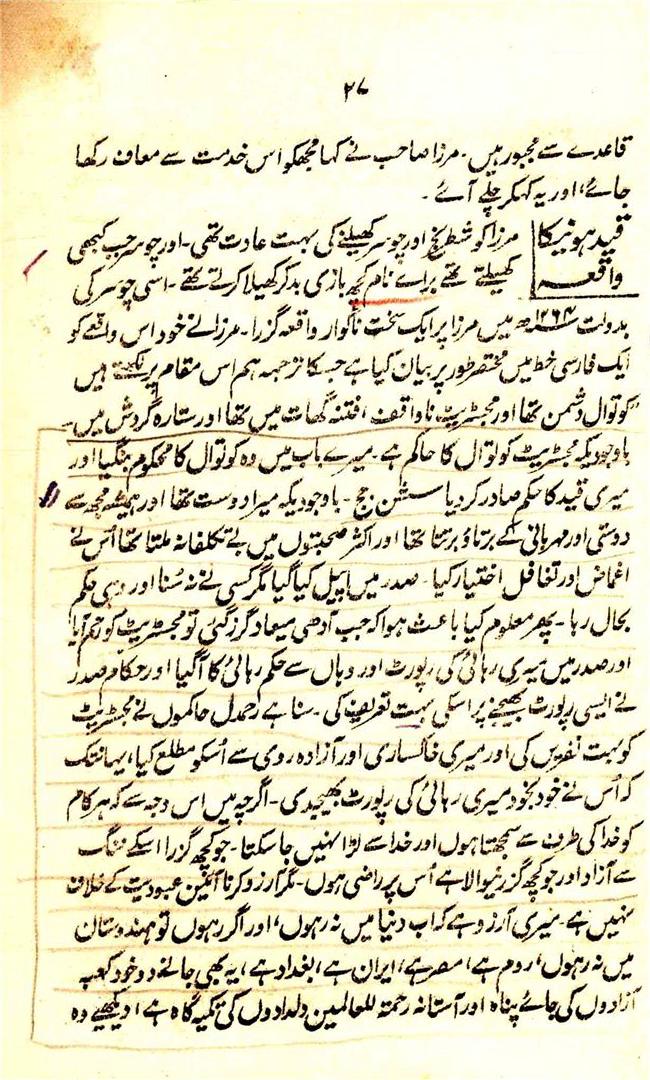 ۲۷
قاعدے سے مجبور ہیں۔ مرزا صاحب نے کہا مجھکو اس خدمت سے معاف رکھا
جائے، اور یہ کہکر چلے آئے۔
قید ہونیکا
واقعہ
مرزا کو شطرنج اور چوسر کھیلنے کی بہت عادت تھی۔ اور چوسر جب کبھی
کھیلتے تھے براے نام کچھ بازی بدکر کھیلا کرتے تھے۔ اسی چوسر کی
بدولت ۱۲۶۴ھ میں مرزا پر ایک سخت ناگوار واقعہ گزرا۔ مرزا نے خود اس واقعے کو
ایک فارسی خط میں مختصر طور پر بیان کیا ہے جسکا ترجمہ ہم اس مقام پر لکھتے ہیں
"کوتوال دشمن تھا اور مجسٹریٹ ناواقف، فتنہ گھات میں تھا اور ستارہ گردش میں۔
باوجودیکہ مجسٹریٹ کوتوال کا حاکم ہے۔ میرے باب میں وہ کوتوال کا محکوم بنگیا اور
میری قید کا حکم صادر کر دیا سشن جج۔ باوجودیکہ میرا دوست تھا اور ہمیشہ مجھ سے
دوستی اور مہربانی کے برتاؤ برتتا تھا اور اکثر صحبتوں میں بے تکلفانہ ملتا تھا اُس نے
اغماض اور تغافل اختیار کیا۔ صدر میں اپیل کیا گیا مگر کسی نے نہ سُنا اور وہی حکم
بحال رہا۔ پھر معلوم کیا باعث ہوا کہ جب آدھی میعاد گزر گئی تو مجسٹریٹ کو رحم آیا
اور صدر میں میری رہائی کی رپورٹ اور وہاں سے حکم رہائی کا آگیا اور حکام صدر
نے ایسی رپورٹ بھیجنے پر اسکی بہت تعریف کی۔ سنا ہے رحمدل حاکموں نے مجسٹریٹ
کو بہت نفریں کی اور میری خاکساری اور آزادہ روی سے اُسکو مطلع کیا، یہانتک
کہ اُس نے خود بخود میری رہائی کی رپورٹ بھیجدی۔ اگرچہ میں اس وجہ سے کہ ہر کام
کو خدا کی طرف سے سمجھتا ہوں اور خدا سے لڑا نہیں جا سکتا۔ جو کچھ گزرا اسکے ننگ
سے آزاد اور جو کچھ گزرنیوالا ہے اُس پر راضی ہوں۔ مگر آرزو کرنا آئین عبودیت کے خلاف
نہیں ہے۔ میری آرزو ہے کہ اب دنیا میں نہ رہوں، اور اگر رہوں تو ہندوستان
میں نہ رہوں، روم ہے، مصر ہے، ایران ہے، بغداد ہے، یہ بھی جانے دو خود کعبہ
آزادوں کی جائے پناہ اور آستانہ رحمۃ للعالمین دلدادوں کی تکیہ گاہ ہے، دیکھیے وہ